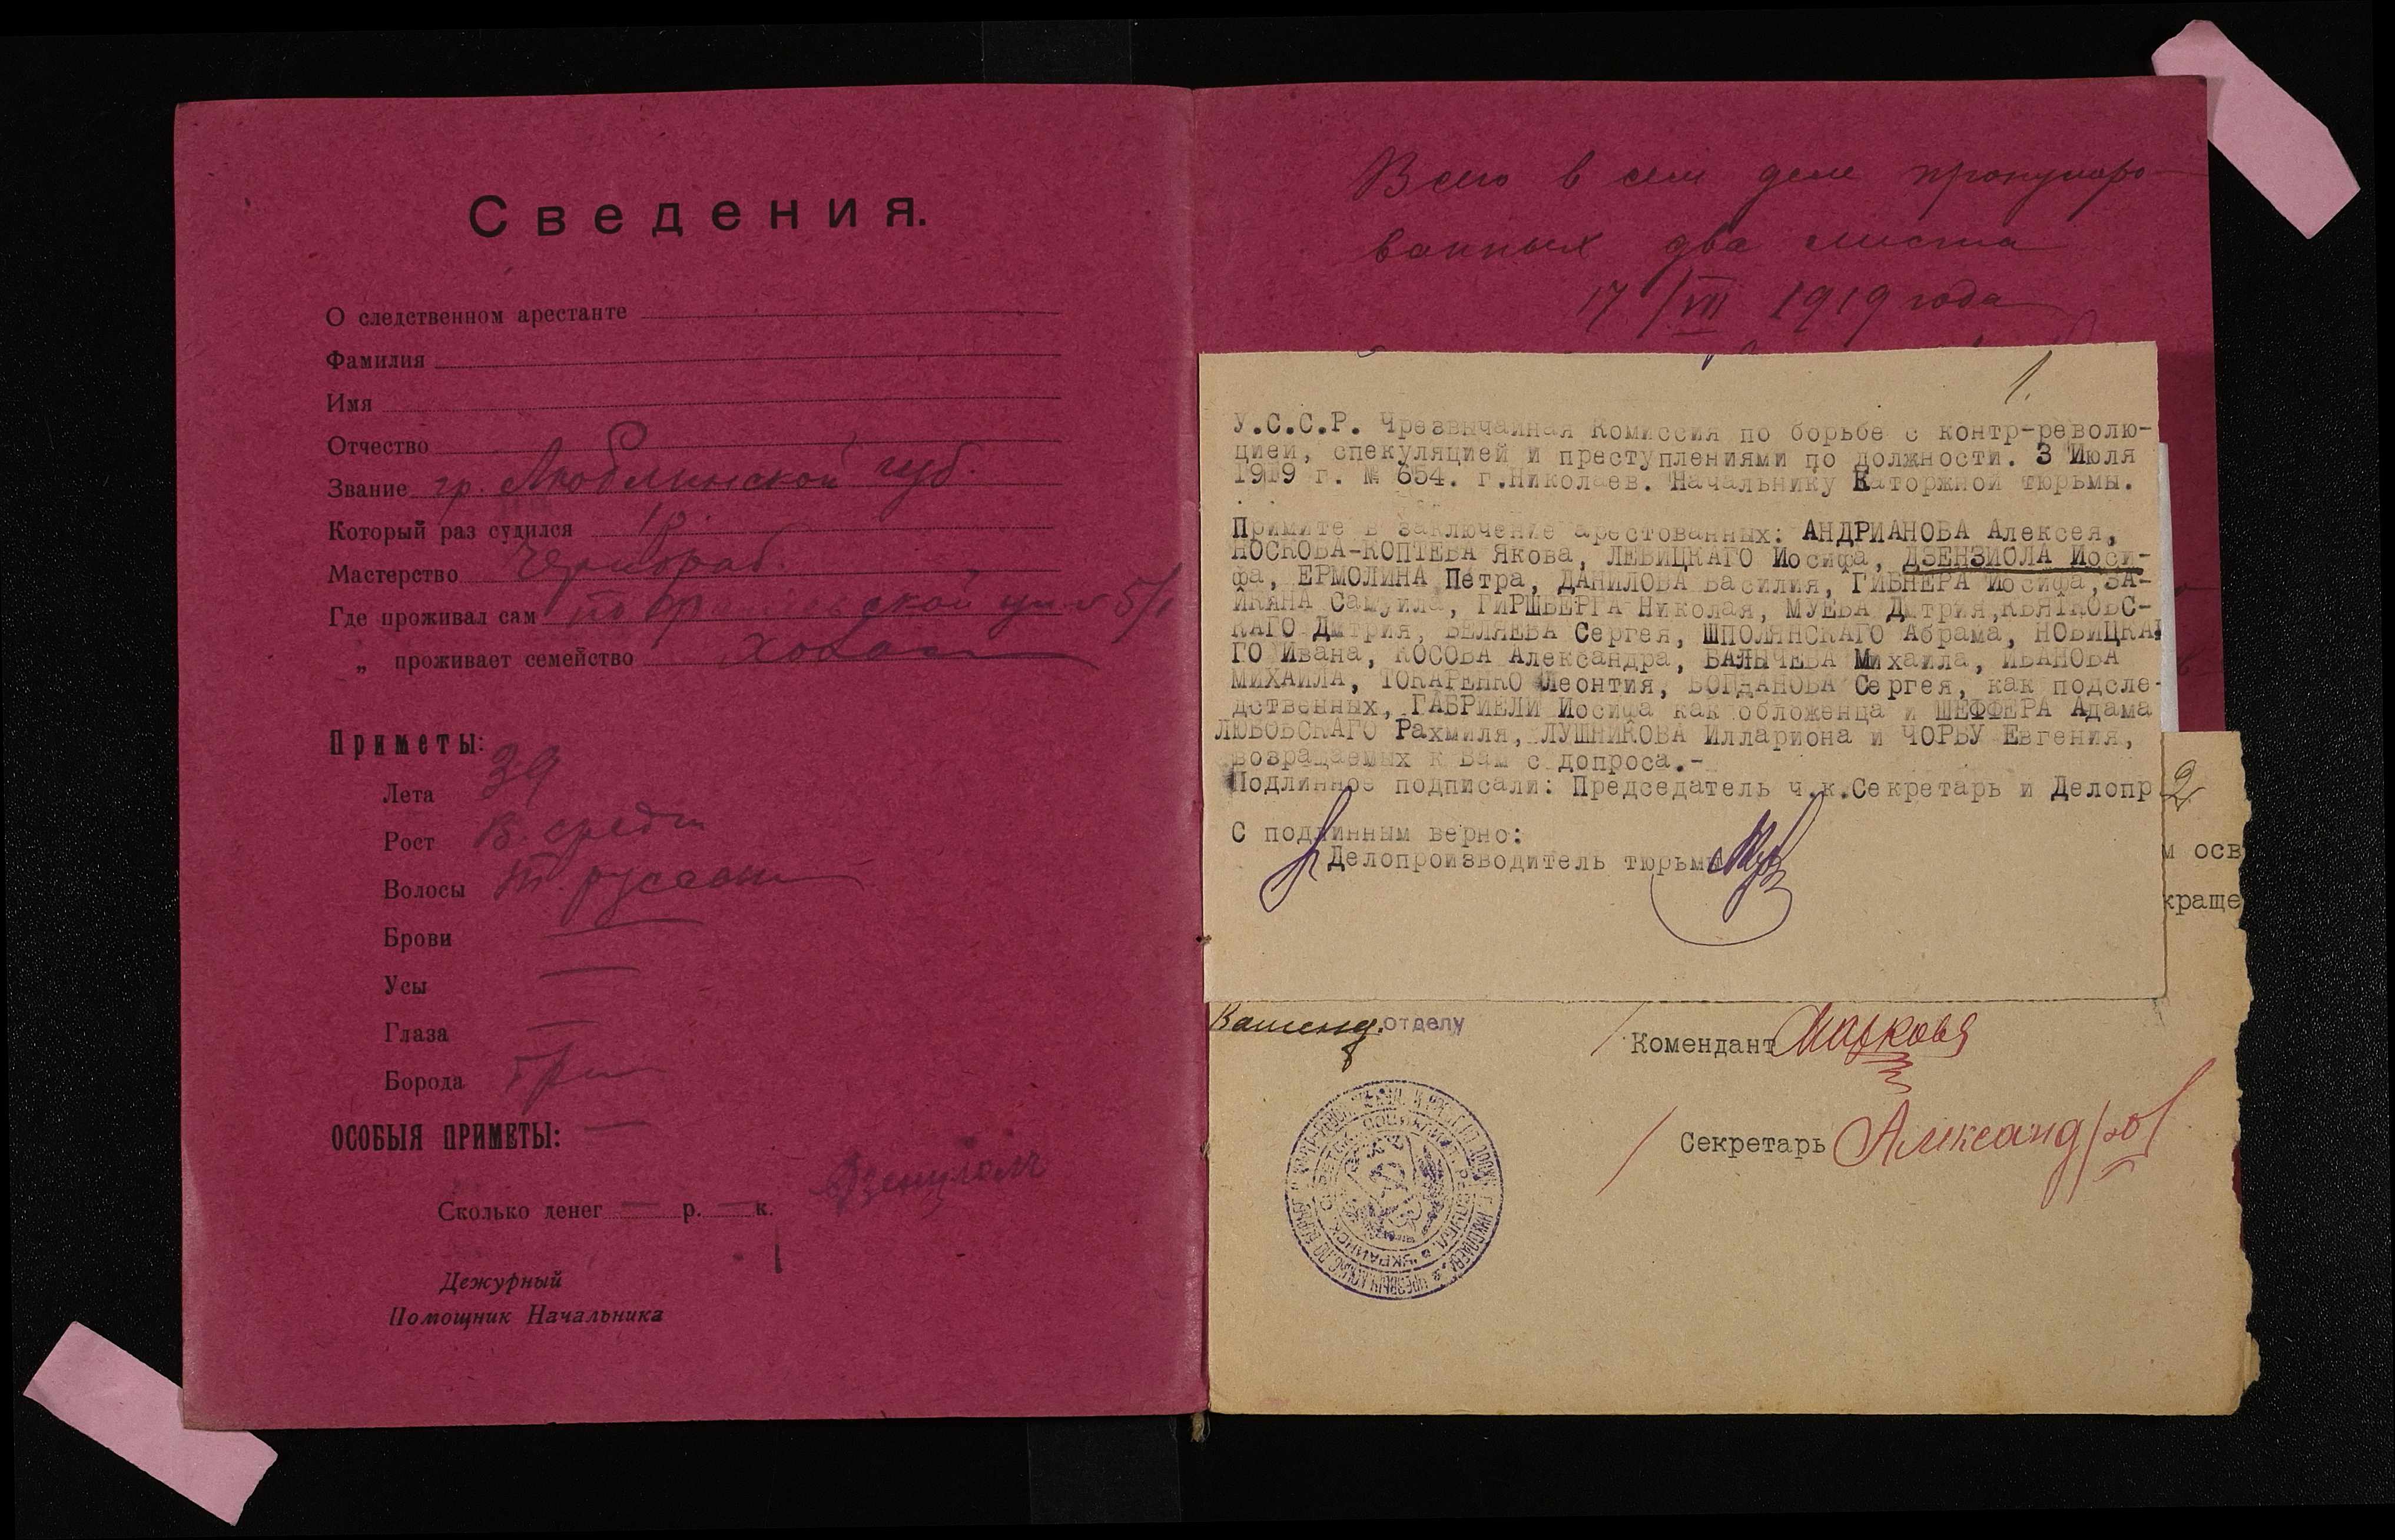 Сведения.
О следственном арестанте
Фамилия
Имя
Отчество
Звание гр. Люблинской губ.
Который раз судился 1 р.
Мастерство Чернораб.
Где проживал сам по ской ул № 5/1
„ проживает семейство холост
Приметы:
Лета 39
Рост в. средн
Волосы т. русые
Брови —
Усы —
Глаза —
Борода
ОСОБЫЯ ПРИМЕТЫ: —
Сколько денег — р. — к.
Дежурный
Помощник Начальника
Всего в сем деле пронумеро-
ванных два листа
17/VII 1919 года
1.
У.С.С.Р. Чрезвычайная Комиссия по борьбе с контр-револю-
цией, спекуляцией и преступлениями по должности. 3 Июля
1919 г. № 654. г.Николаев. Начальнику Каторжной тюрьмы.
Примите в заключение арестованных: АНДРИАНОВА Алексея,
НОСКОВА-КОПТЕВА Якова, ЛЕВИЦКАГО Иосифа, ДЗЕНЗИОЛА Иоси-
фа, ЕРМОЛИНА Петра, ДАНИЛОВА Василия, ГИБНЕРА Иосифа, ЗА-
ЙКЯНА Самуила, ГИРШБЕРГА Николая, МУЕВА Дмтрия, КВЯТКОВС-
КАГО Дмтрия, БЕЛЯЕВА Сергея, ШПОЛЯНСКАГО Абрама, НОВИЦКА
ГО Ивана, КОСОВА Александра, БАЛЫЧЕВА Михаила, ИВАНОВА
МИХАИЛА, ТОКАРЕНКО Леонтия, БОГДАНОВА Сергея, как подсле-
дственных, ГАБРИЕЛИ Иосифа как обложенца и ШЕФФЕРА Адама
ЛЮБОВСКАГО Рахмиля, ЛУШНИКОВА Иллариона и ЧОРБУ Евгения,
возращаемых к Вам с допроса.-
Подлинное подписали: Председатель ч.к.Секретарь и Делопр
С подлинным верно:
Делопроизводитель тюрьмы
2
м осв
краще
отделу
Комендант Маркова
Секретарь Александров